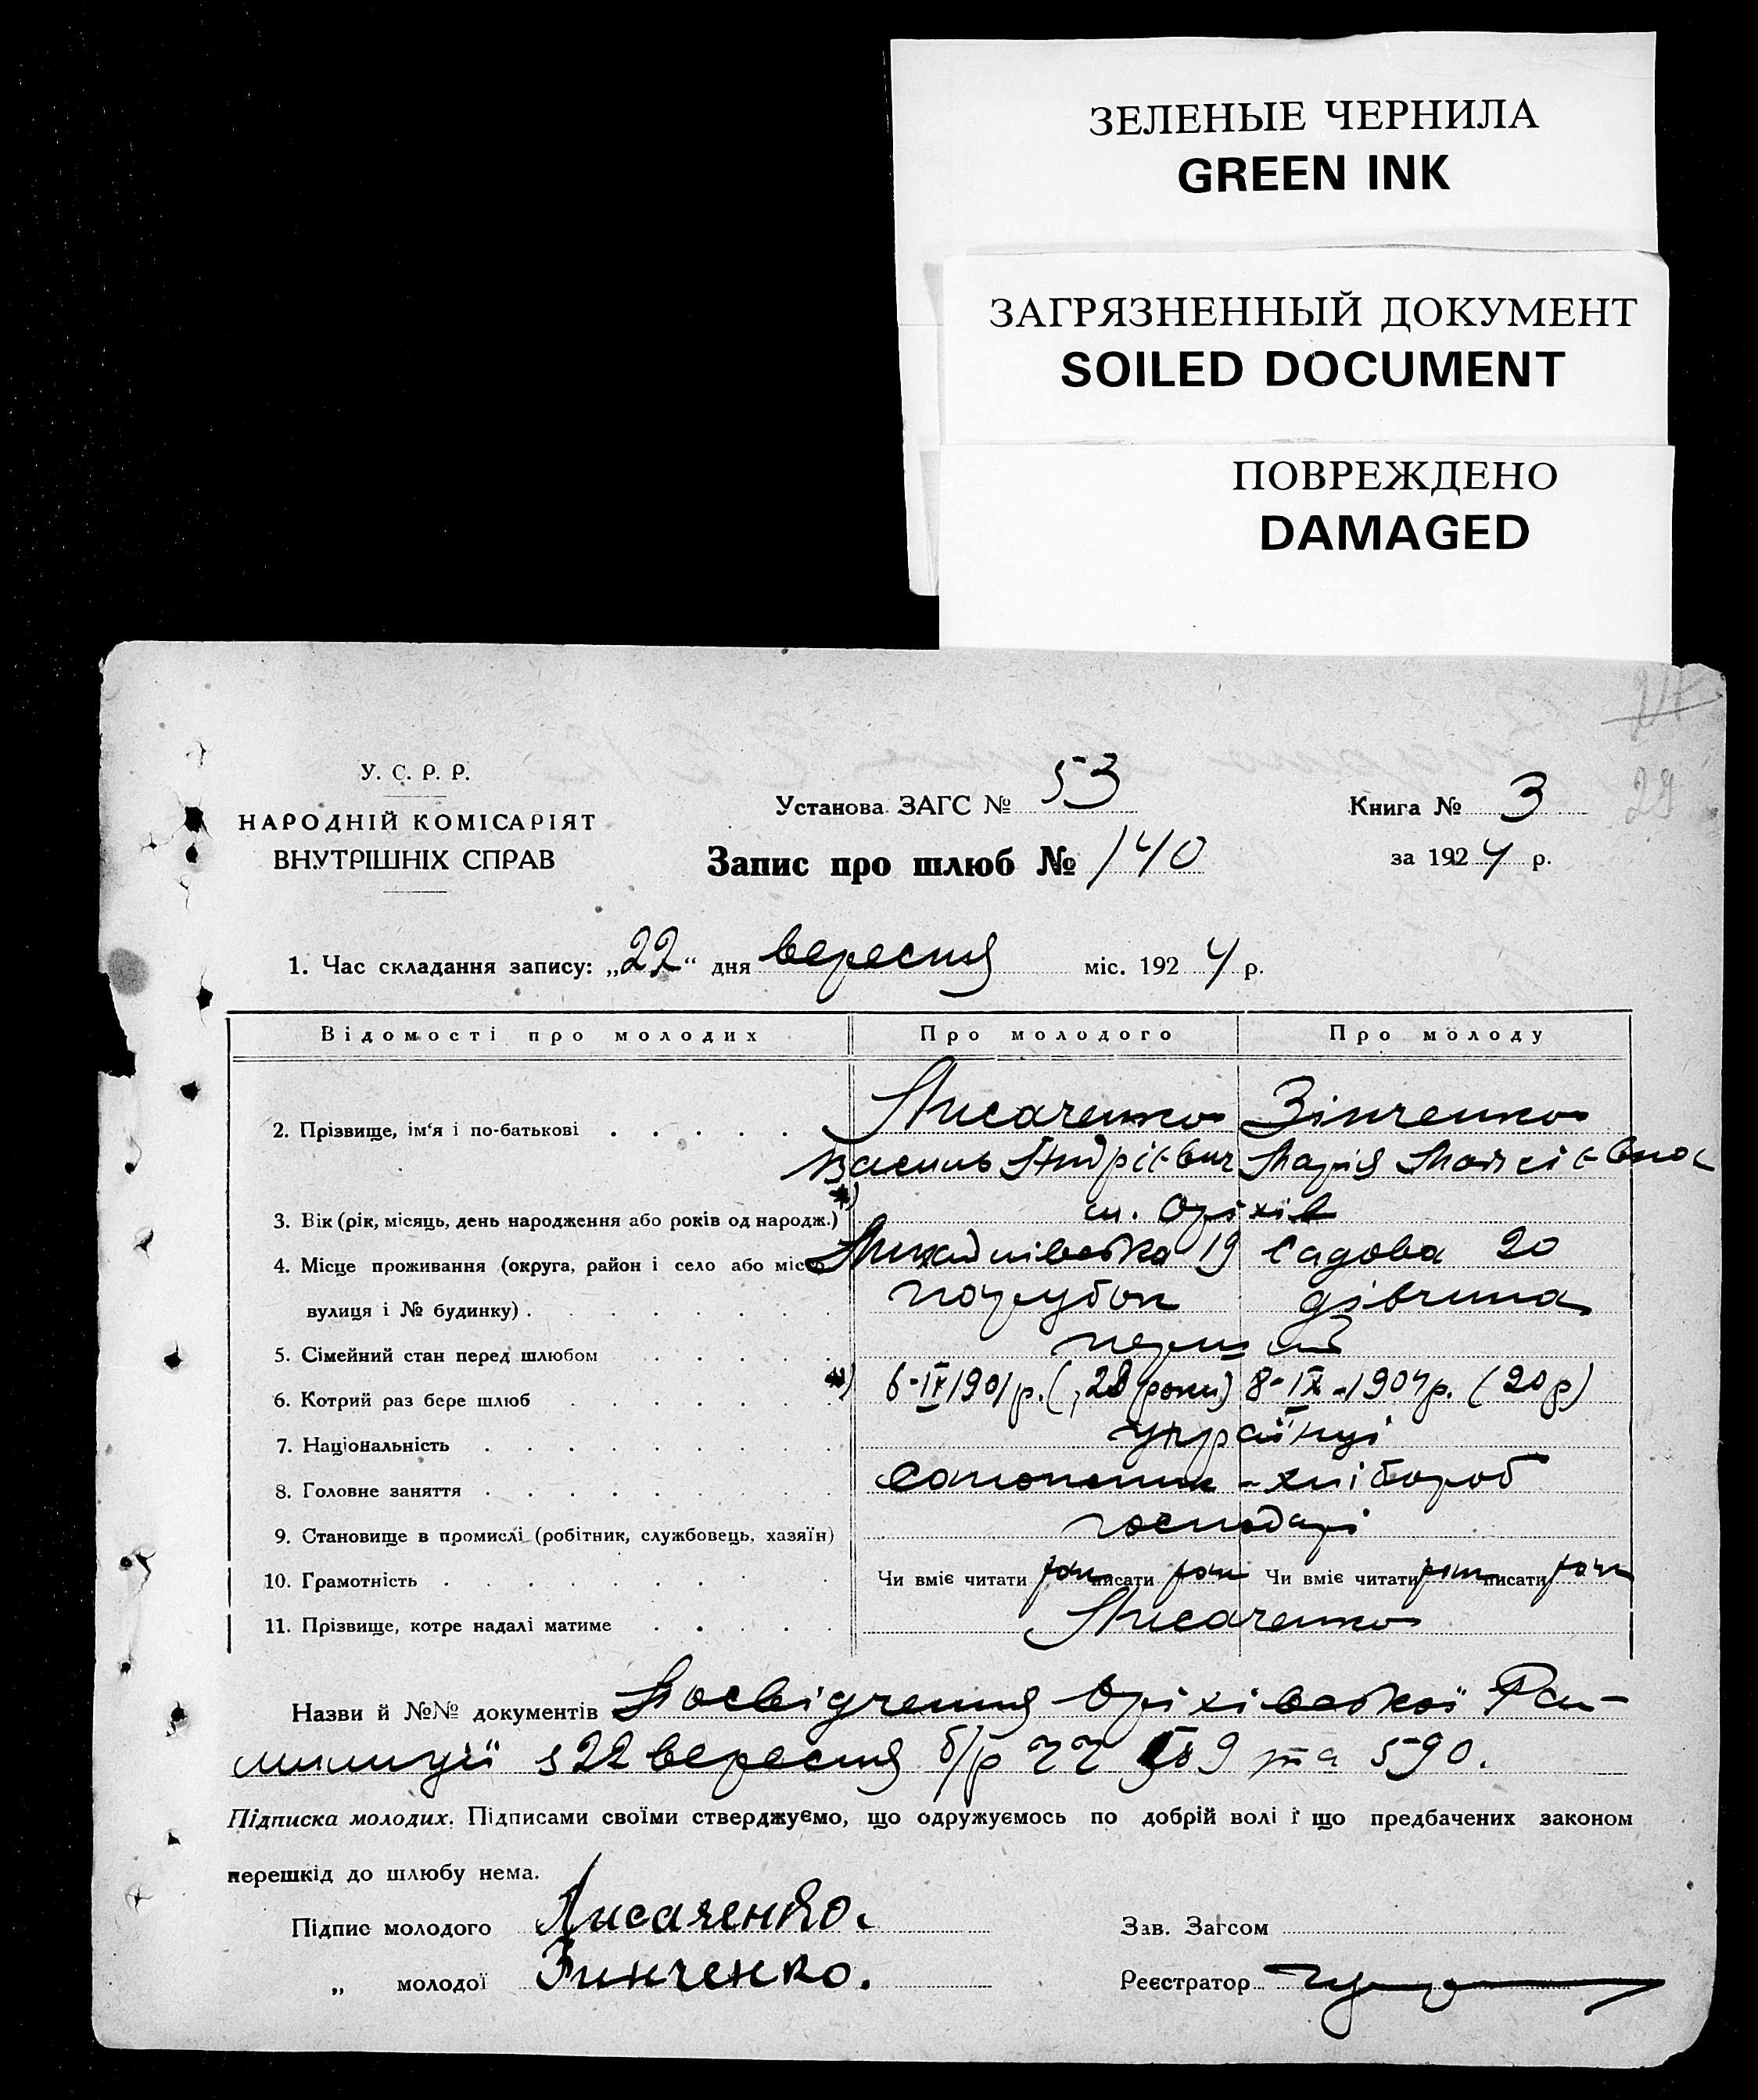 ЗЕЛЕНЫЕ ЧЕРНИЛА
GREEN INK
ЗАГРЯЗНЕННЫЙ ДОКУМЕНТ
SOILED DOCUMENT
ПОВРЕЖДЕНО
DAMAGED
29
У. С. Р. Р.
НАРОДНІЙ КОМІСАРІЯТ
ВНУТРІШНІХ СПРАВ
Установа ЗАГС № 53
Запис про шлюб № 140
Книга № 3
за 1924 р.
1. Час складання запису: „22“ дня вересня міс. 1924 р.
Відомості про молодих Про молодого Про молоду
2. Прізвище, ім'я і по-батькові Лисаченко Зінченко
Василь Андрієвич Марія Мойсієвна
3. Вік (рік, місяць, день народження або років од народж.) *) м. Оріхів
4. Місце проживання (округа, район і село або місто 19 Садова 20
вулиця і № будинку) парубок дівчина
5. Сімейний стан перед шлюбом
6. Котрий раз бере шлюб *) 6-IX 1901 р. (23 роки) 8-IX-1904р. (20 р)
7. Національність українці
8. Головне заняття - хлібороб
9. Становище в промислі (робітник, службовець, хазяїн) господарі
10. Грамотність Чи вміє читати писати Чи вміє читати писати
11. Прізвище, котре надалі матиме Лисаченко
Назви й №№ документів Посвідчення Оріхівської Рай-
милиції з 22 вересня б/р 589 та 590.
Підписка молодих. Підписами своїми стверджуємо, що одружуємось по добрій волі і що предбачених законом
перешкід до шлюбу нема.
Підпис молодого Лисаченко.
Зав. Загсом
„ молодої Зинченко.
Реєстратор